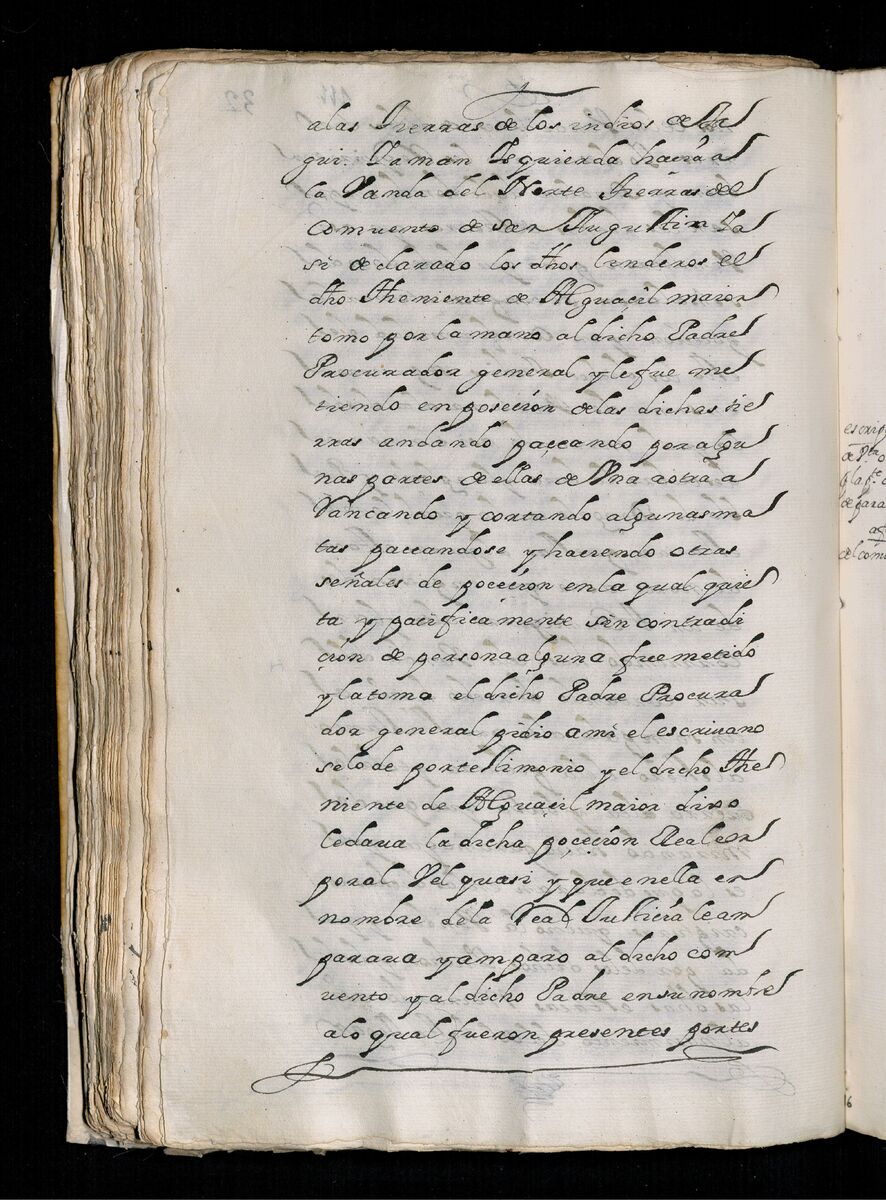 alas tierras de los indios de Ta
gui. Ya man Isquierda hacia a
la Vanda del Norte tierras del
Comuento de san Augustin Ya
si declarado los dhos linderos el
dho theniente de Alguacil maior
tomo por la mano al dicho Padre
Procurador general y le fue me
tiendo en poseción de las dichas tie
rras andando paçeando por algu
nas partes de ellas de Vna aotra a
Rancando y cortando algunas ma
tas paceandose y haciendo otras
señales de poceción en la qual quie
ta y pacificamente sin contradi
ción de persona alguna fue metido
y la toma el dicho Padre Procura
dor general pidio a mi el escriuano
se lo de por testimonio y el dicho the
niente de Alguacil maior dixo
le daua la dicha poçeción Real cor
poral Vel quasi y que en ella en
nombre de la Real Justicia le am
paraua y amparo al dicho com
uento y al dicho Padre en su nombre
alo qual fueron presentes por tes
escrip
de
de para
del com